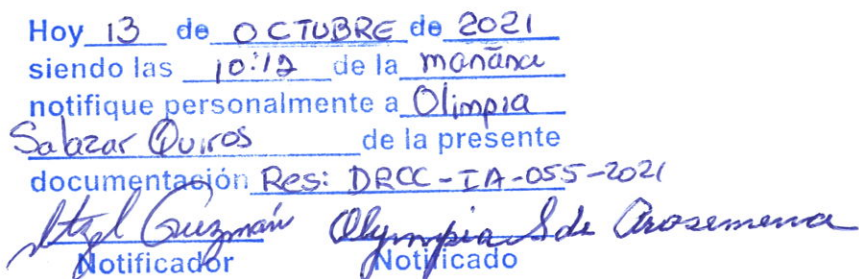 Hoy 13 de OCTUBRE de 2021
siendo las 10:12 de la mañana
notifique personalmente a Olimpia
Salazar Quiros de la presente
documentación Res: DRCC-IA-055-2021
Itzel Guzmán Olympia S de Arosemena
Notificador Notificado